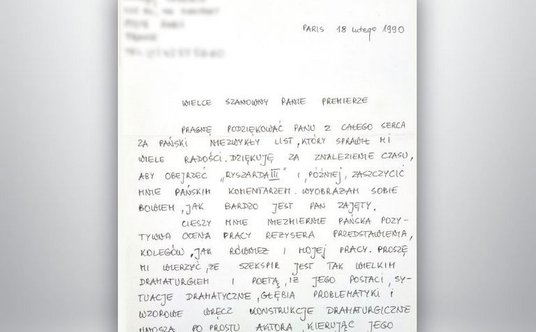 PARIS 18 lutego 1990
WIELCE SZANOWNY PANIE PREMIERZE
PRAGNĘ PODZIĘKOWAĆ PANU Z CAŁEGO SERCA
ZA PAŃSKI NIEZWYKŁY LIST, KTÓRY SPRAWIŁ MI
WIELE RADOŚCI. DZIĘKUJĘ ZA ZNALEZIENIE CZASU,
ABY OBEJRZEĆ „RYSZARDA III" I, PÓŹNIEJ, ZASZCZYCIĆ
MNIE PAŃSKIM KOMENTARZEM. WYOBRAŻAM SOBIE
BOWIEM, JAK BARDZO JEST PAN ZAJĘTY.
CIESZY MNIE NIEZMIERNIE PAŃSKA POZY-
TYWNA OCENA PRACY REŻYSERA PRZEDSTAWIENIA,
KOLEGÓW, JAK RÓWNIEŻ I MOJEJ PRACY. PROSZĘ
MI WIERZYĆ, ŻE SZEKSPIR JEST TAK WIELKIM
DRAMATURGIEM I POETĄ, IŻ JEGO POSTACI, SY-
TUACJE DRAMATYCZNE, GŁĘBIA PROBLEMATYKI I
WZOROWE WRĘCZ KONSTRUKCJE DRAMATURGICZNE
UNOSZĄ PO PROSTU AKTORA, KIERUJĄC JEGO